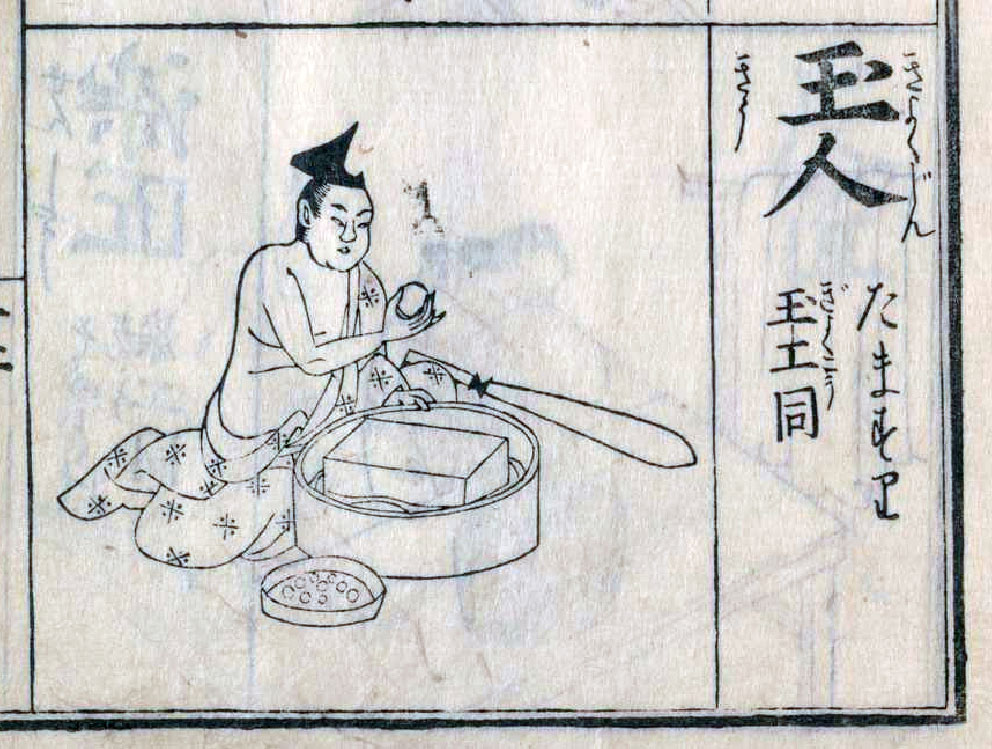 玉人
ぎよくじん
たますり
玉工同
ぎよくこう